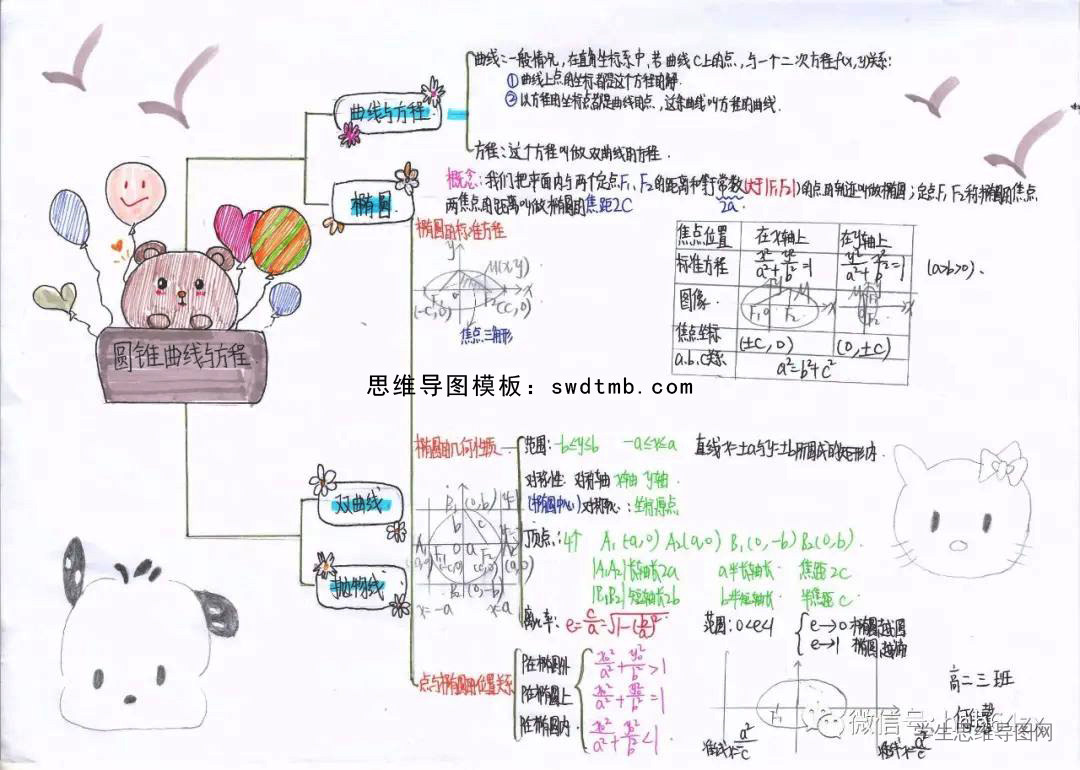 曲线:一般情况,在直角坐标系中,若曲线C上的点,与一个二次方程f(x,y)关系:
①曲线上点的坐标都是这个方程的解.
②以方程的坐标点都是曲线的点,这条曲线叫方程的曲线.
曲线与方程
方程:这个方程叫做双曲线的方程.
椭圆
概念:我们把平面内与两个定点F₁、F₂的距离和等于常数(大于|F₁F₂|)的点的轨迹叫做椭圆;定点F₁F₂称椭圆的焦点
2a
两焦点的距离叫做椭圆的焦距2C
椭圆的标准方程
y
M(x,y)
F₁ 0 F₂ x
(-C,0) (C,0)
焦点三角形
焦点位置 在x轴上 在y轴上
标准方程 x²/a²+y²/b²=1 y²/a²+x²/b²=1 (a>b>0).
图像.
F₁ 0 F₂
焦点坐标 (±C,0) (0,±C)
a.b.c关系 a²=b²+c²
圆锥曲线与方程
思维导图模板:swdtmb.com
椭圆的几何性质
范围:-b≤y≤b -a≤x≤a 直线x=±a与y=±b所围成的矩形内.
对称性:对称轴 x轴 y轴
(椭圆中心) 对称心:坐标原点
顶点:4个 A₁(-a,0) A₂(a,0) B₁(0,-b) B₂(0,b).
|A₁A₂|长轴长2a a半长轴长 焦距2C
|B₁B₂|短轴长2b b半短轴长 半焦距C
离心率:e=c/a=√1-(b/a)² 范围:0<e<1
e→0 椭圆越圆
e→1 椭圆越扁
B₁(0,b)
A₁ F₁ 0 F₂ A₂
B₂(0,-b)
x=-a x=a
双曲线
抛物线
点与椭圆的位置关系
P在椭圆外 x₀²/a²+y₀²/b²>1
P在椭圆上 x₀²/a²+y₀²/b²=1
P在椭圆内 x₀²/a²+y₀²/b²<1
F₁
准线x=-a²/c 准线x=a²/c
高二三班
微信号:
学生思维导图网